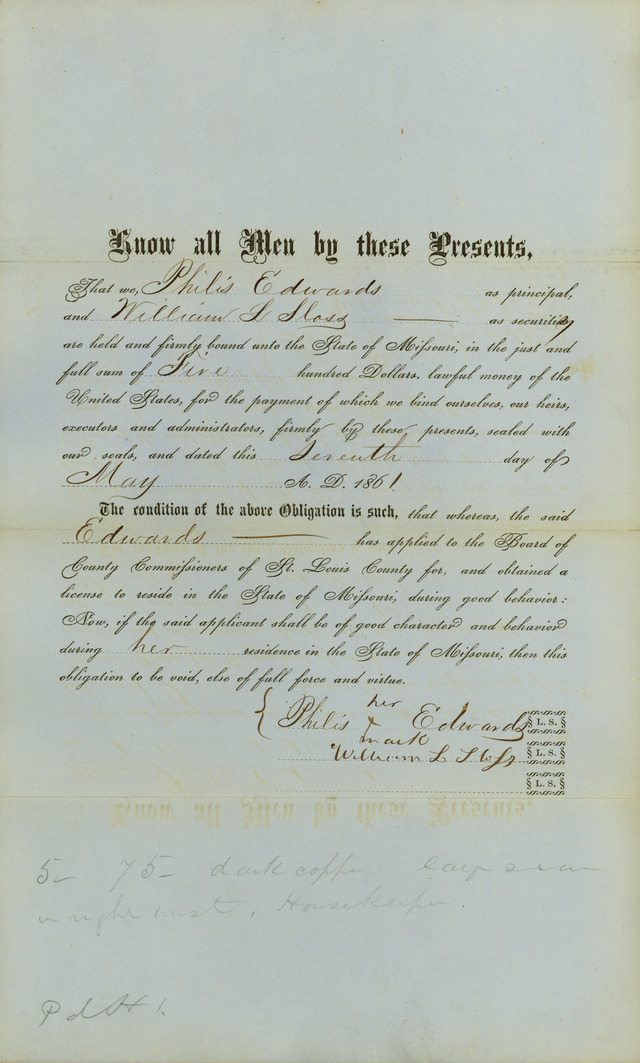 Know all Men by these Presents,
That we, Philis Edwards as principal,
and William L Sloss as security
are held and firmly bound unto the State of Missouri, in the just and
full sum of Five hundred Dollars, lawful money of the
United States, for the payment of which we bind ourselves, our heirs,
executors and administrators, firmly by these presents, sealed with
our seals, and dated this Seventh day of
May A. D. 1861
The condition of the above Obligation is such, that whereas, the said
Edwards has applied to the Board of
County Commissioners of St. Louis County for, and obtained a
license to reside in the State of Missouri, during good behavior:
Now, if the said applicant shall be of good character and behavior
during her residence in the State of Missouri, then this
obligation to be void, else of full force and virtue.
her
Philis x Edwards L. S.
mark
William L Sloss L. S.
L. S.
5- 75- dark copper large scar
in right wrist, Housekeeper.
Pd $1.